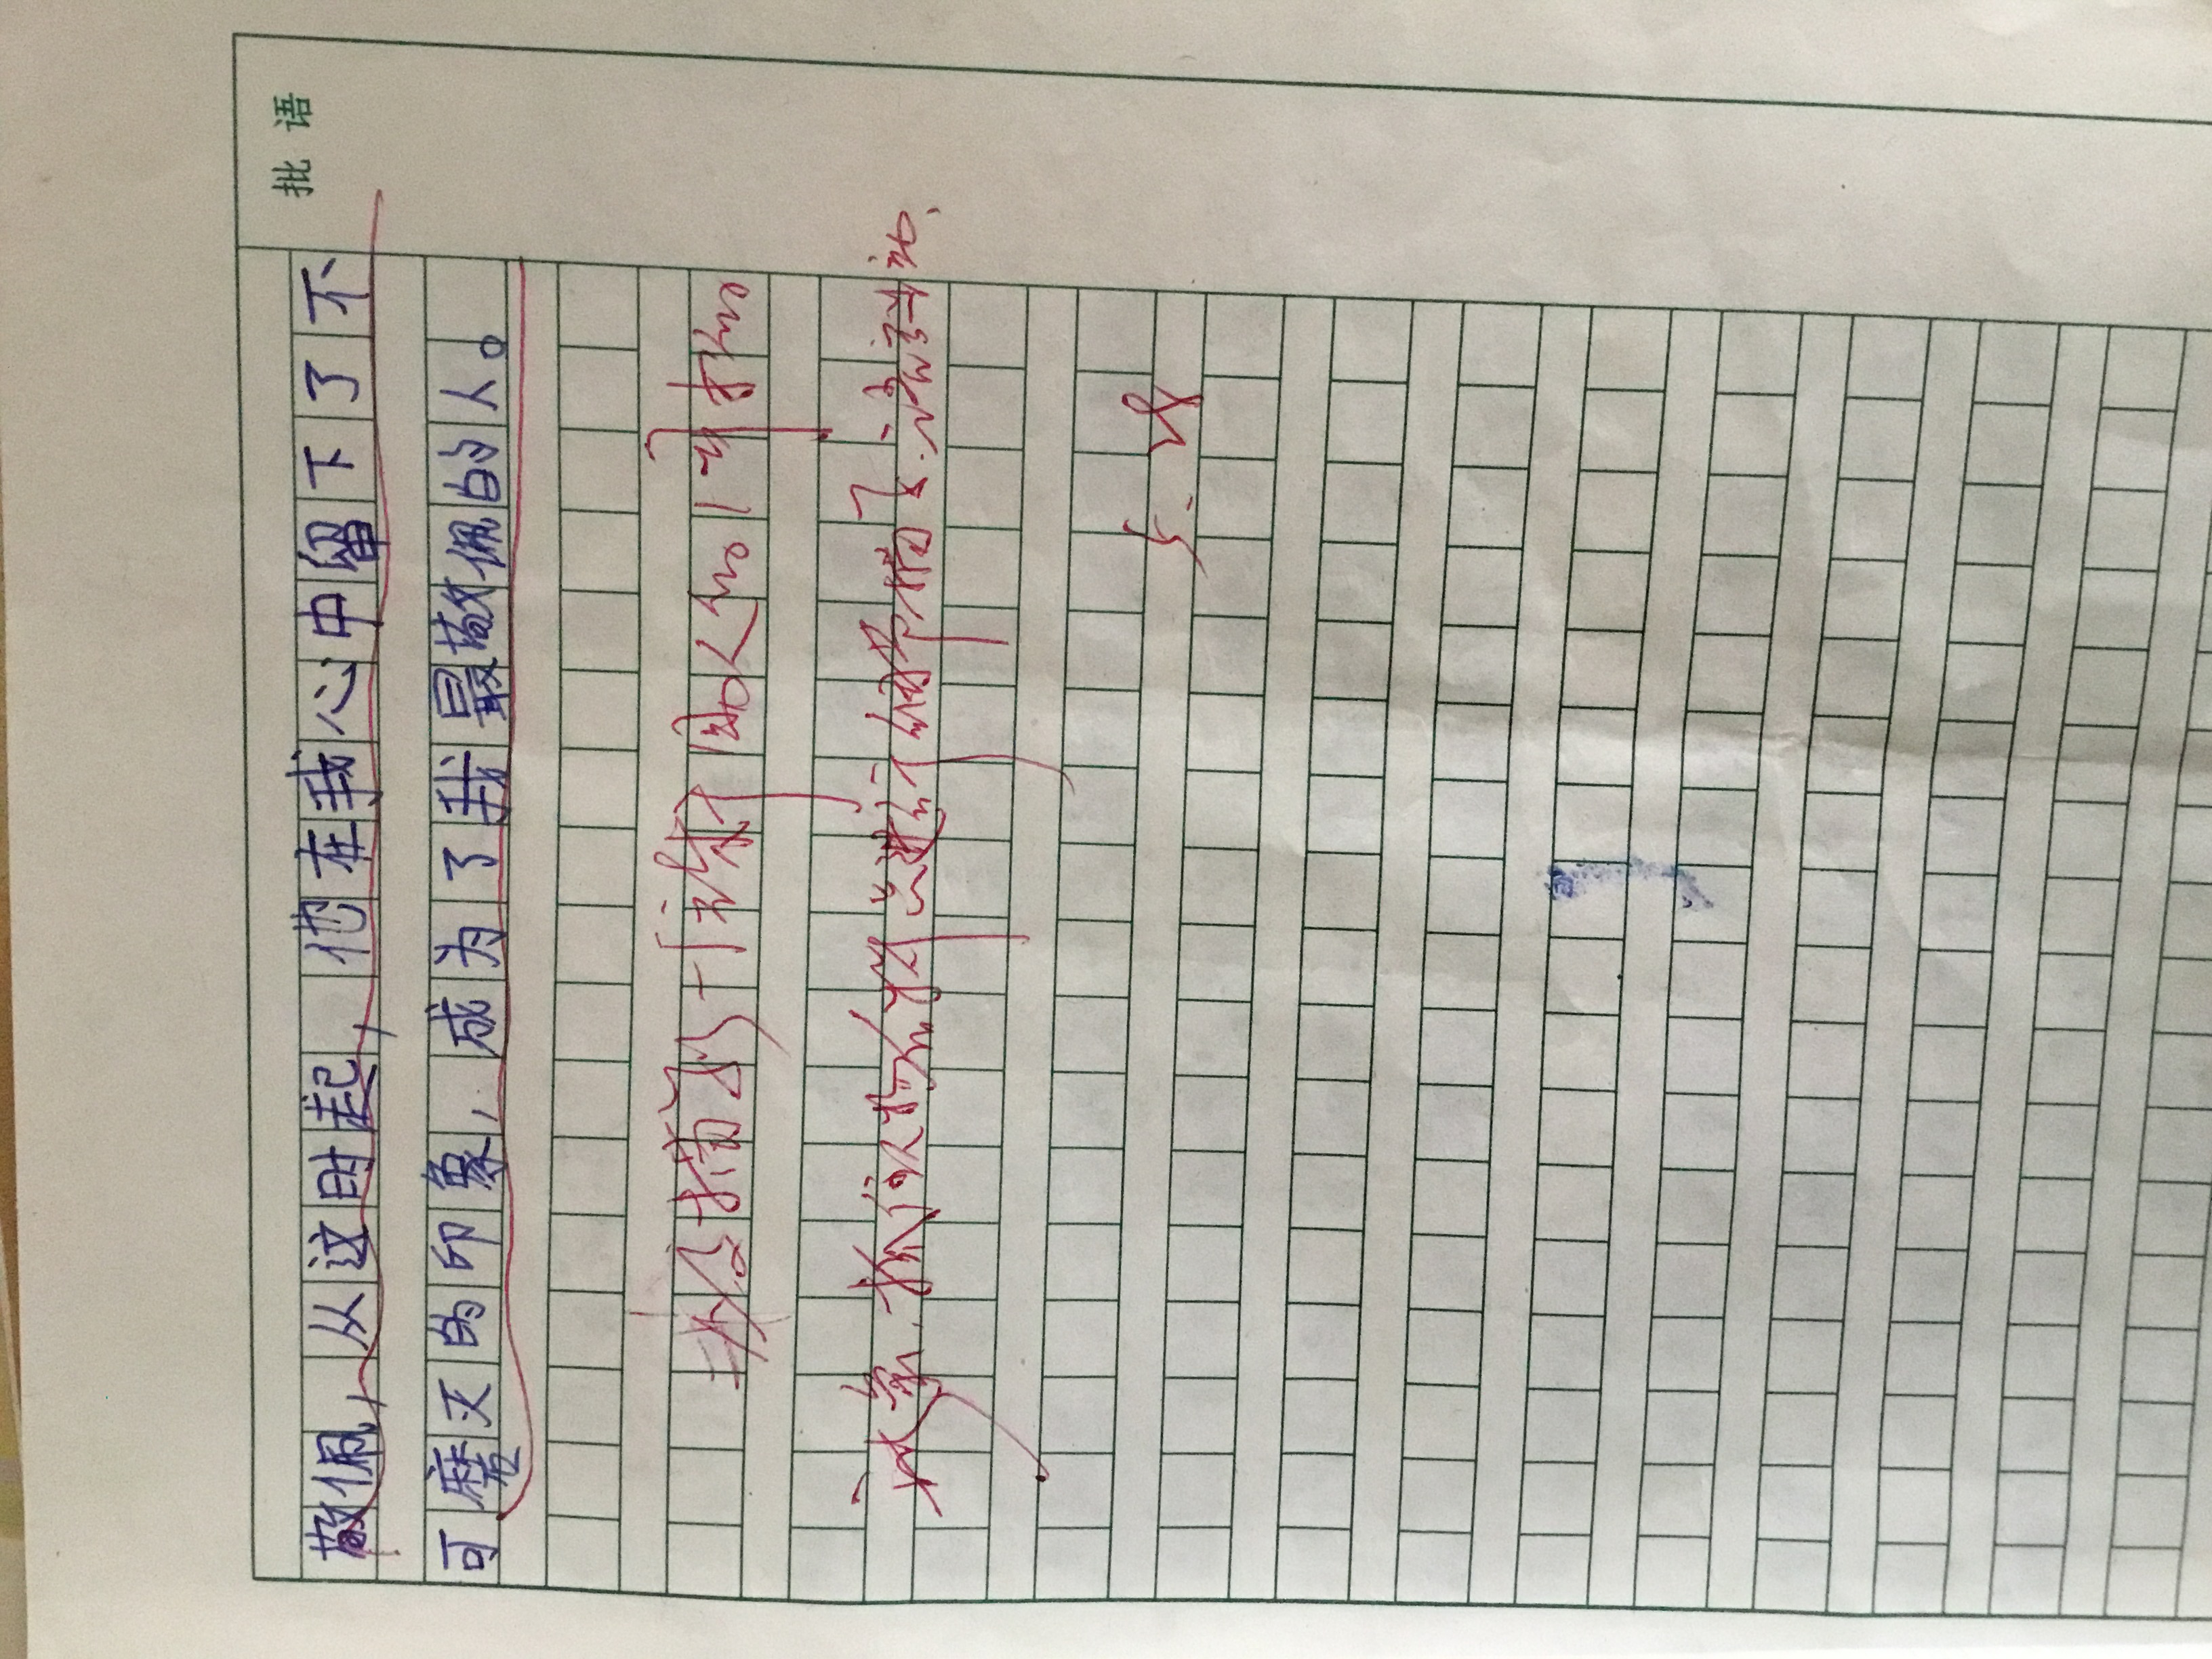 批语
敬佩，从这时起，他在我心中留下了不
可磨灭的印象，成为了我最敬佩的人。
描写一个
对象，抓住人物的特点进行细节描写，语言生动、
5.28